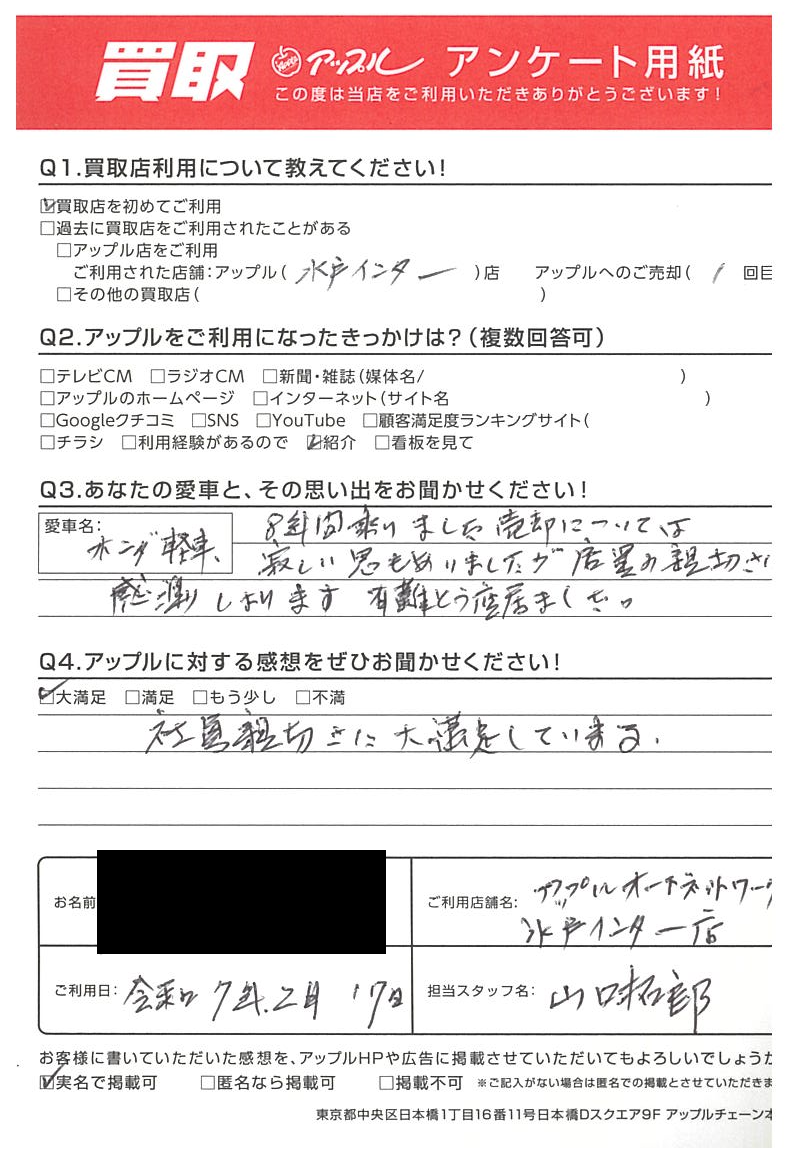 買取 アップル アンケート用紙
この度は当店をご利用いただきありがとうございます!
Q1.買取店利用について教えてください!
☑買取店を初めてご利用
□過去に買取店をご利用されたことがある
□アップル店をご利用
ご利用された店舗:アップル( 水戸インター )店 アップルへのご売却( 1 回目
□その他の買取店( )
Q2.アップルをご利用になったきっかけは?(複数回答可)
□テレビCM □ラジオCM □新聞・雑誌(媒体名/ )
□アップルのホームページ □インターネット(サイト名 )
□Googleクチコミ □SNS □YouTube □顧客満足度ランキングサイト(
□チラシ □利用経験があるので ☑紹介 □看板を見て
Q3.あなたの愛車と、その思い出をお聞かせください!
愛車名: ホンダ軽車、 8年間乗りました売却については
寂しい思もありましたが店員の親切さ
感謝しおります 有難とう座居ました。
Q4.アップルに対する感想をぜひお聞かせください!
☑大満足 □満足 □もう少し □不満
社員親切さに大満足している.
お名前
ご利用店舗名: アップルオートネットワーク
水戸インター店
ご利用日: 令和7年.2月17日 担当スタッフ名: 山口拓郎
お客様に書いていただいた感想を、アップルHPや広告に掲載させていただいてもよろしいでしょうか
☑実名で掲載可 □匿名なら掲載可 □掲載不可 ※ご記入がない場合は匿名での掲載とさせていただきま
東京都中央区日本橋1丁目16番11号日本橋Dスクエア9F アップルチェーン本